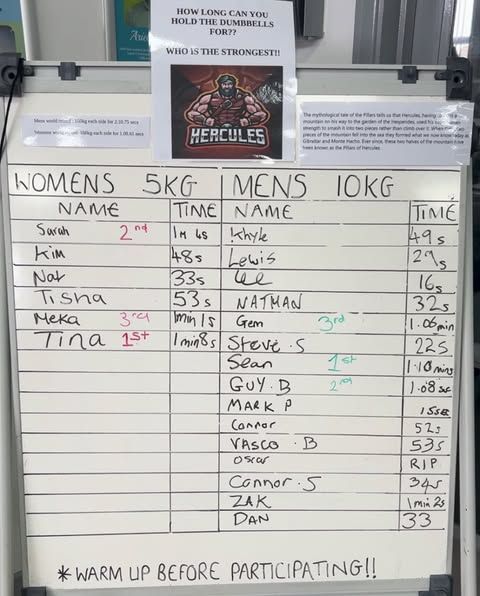 HOW LONG CAN YOU
HOLD THE DUMBBELLS
FOR??
WHO IS THE STRONGEST!!
HERCULES
The mythological tale of the Pillars tells us that Hercules, having
mountain on his way to the garden of the Hesperides, used his
strength to smash it into two pieces rather than climb over it. When
pieces of the mountain fell into the sea they formed what we now know today as
Gibraltar and Monte Hacho. Ever since, these two halves of the mountain have
been known as the Pillars of Hercules.
WOMENS 5KG MENS 10KG
NAME TIME NAME TIME
Sarah 2nd 1m 4s Khyle 49s
Kim 48s Lewis 29s
Nat 33s Lee 16s
Tisha 53s NATMAN 32s
Meka 3rd 1min 1s Gem 3rd 1.06min
Tina 1st 1min8s Steve.S 22s
Sean 1st 1.10mins
GUY.B 2nd 1.08sec
MARK P 15sec
Connor 52s
VASCO.B 53s
Oscar RIP
Connor.S 34s
ZAK 1min 2s
DAN 33
*WARM UP BEFORE PARTICIPATING!!